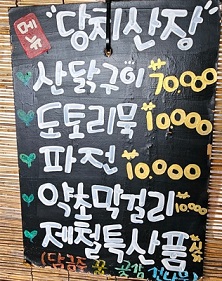 메뉴 "당치산장"
산닭구이 70.000
도토리묵 10000
파전 10.000
약초막걸리 10000
제철특산품 싯가
(당귀순 꿀 곶감